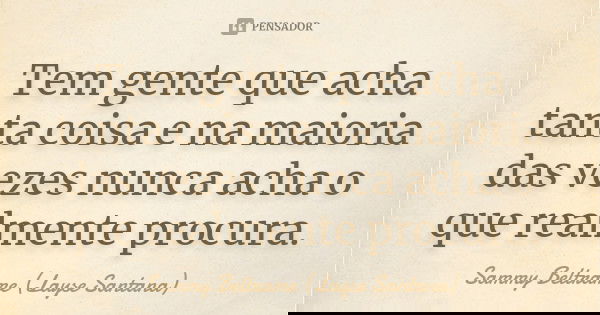 PENSADOR
Tem gente que acha
tanta coisa e na maioria
das vezes nunca acha o
que realmente procura.
Sammy Beltrame (Jayse Santana)